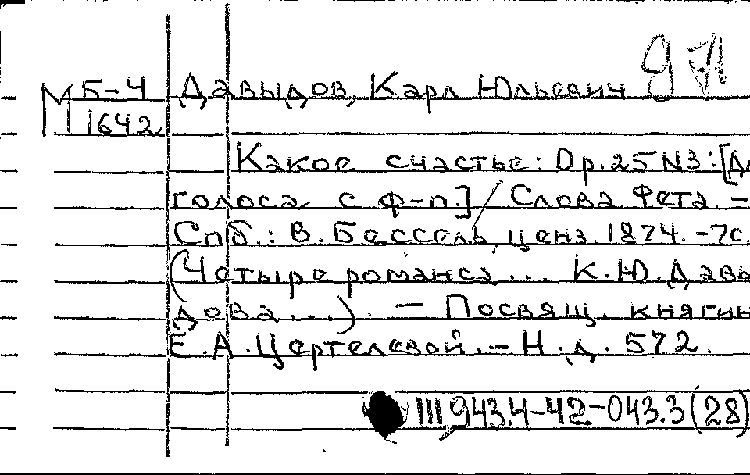 971
М Б-4 Давыдов, Карл Юльевич
1642
Какое счастье: Op.25 N3: [Дл
голоса с ф-п.] / Слова Фета. –
Спб.: В. Бессель, ценз. 1874. – 7с.
(Четыре романса ... К.Ю. Давы
дова ...). – Посвящ. княгин
Е.А. Цертелевой. – Н.д. 572.
III 943.4-42-043.3(28)